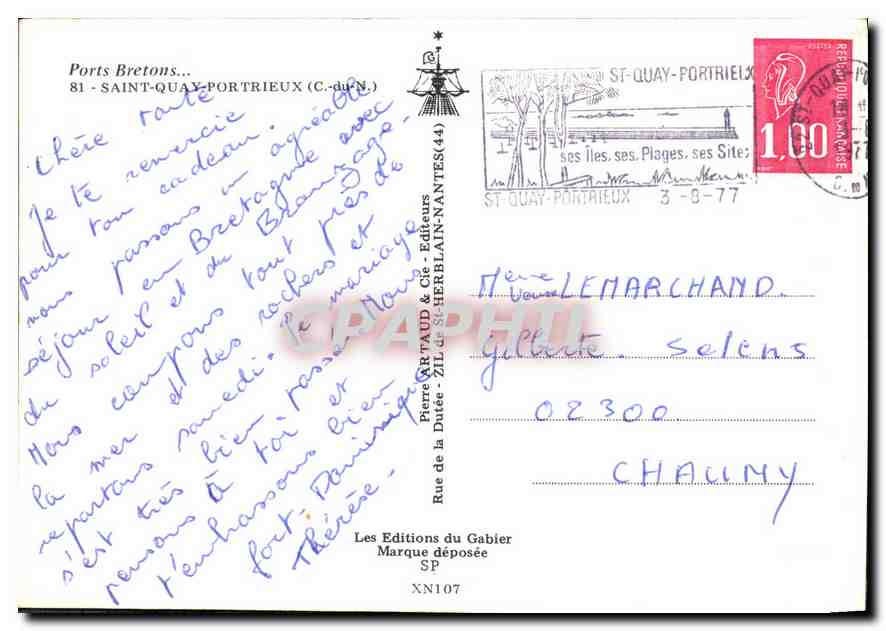 Ports Bretons...
81 - SAINT-QUAY-PORTRIEUX (C.-du-N.)
Chère tante
Je te remercie
pour ton cadeau.
nous passons un agréable
séjour en Bretagne avec
du soleil et du Bronzage.
Nous campons tout près de
la mer et des rochers et
repartons samedi. Le mariage
s'est très bien passé. Nous
pensons à toi et
t'embrassons bien
fort. Dominique
Thérèse.
Pierre ARTAUD & Cie - Editeurs
Rue de la Dutée - ZIL de St-HERBLAIN-NANTES (44)
Les Editions du Gabier
Marque déposée
SP
XN107
ST-QUAY-PORTRIEUX
ses Îles, ses Plages, ses Sites
ST-QUAY-PORTRIEUX 3-8-77
REPUBLIQUE FRANCAISE
1,00
Mme Veuve LEMARCHAND.
Gilberte. Selens
02300
CHAUNY
CPAPHIL